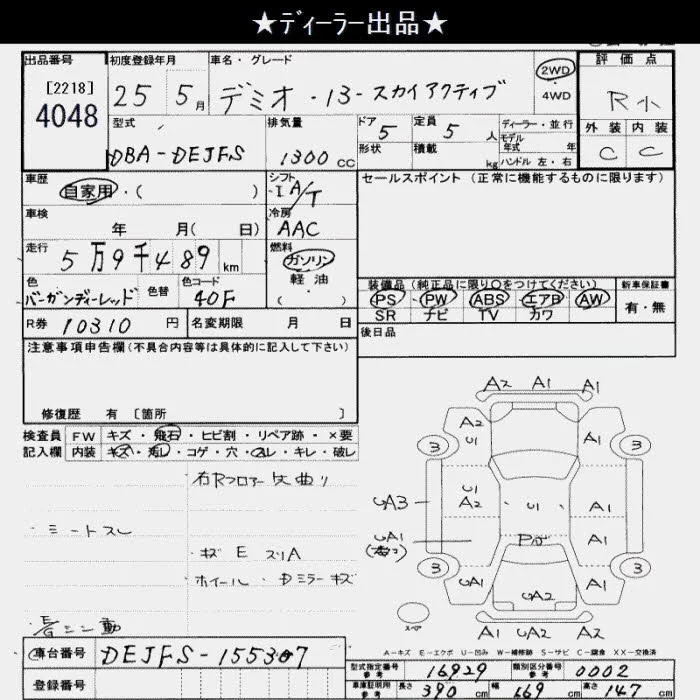 ★ディーラー出品★
出品番号 初度登録年月 車名・グレード 評価点
[2218]
4048
25 5月 デミオ・13-スカイアクティブ 2WD 4WD R小
外装 内装
C C
型式 排気量 ドア 定員 ディーラー・並行
DBA-DEJFS 1300cc 5 5人 モデル年式 年
形状 積載 kg ハンドル 左・右
車歴 シフト セールスポイント (正常に機能するものに限ります)
自家用・( ) I A/T
車検 冷房
年 月( 日) AAC
走行 燃料
5万9千489km ガソリン
軽油
( )
色 色替 色コード
バーガンディーレッド 40F
装備品(純正品に限り○をつけてください) 新車保証書
PS PW ABS エアB AW 有・無
SR ナビ TV カワ
R券 10310円 名変期限 月 日
後日品
注意事項申告欄(不具合内容等は具体的に記入して下さい)
修復歴 有 [箇所 ]
検査員 FW キズ・飛石・ヒビ割・リペア跡・×要
記入欄 内装 キズ・汚レ・コゲ・穴・スレ・キレ・破レ
右Rフロアー 曲り
・シートスレ
・キズ E スリA
ホイール・Dミラーキズ
A2 A1 A1
A2
U1 A1
3 3
UA3 U1
A2 U1 A1
UA1
A1
3 3
UA1 UA2 A1
スペア
A1 UA2 A2
A-キズ E-エクボ U-凹み W-補修跡 S-サビ C-腐食 XX-交換済
車台番号 DEJFS-155307
登録番号
型式指定番号 参考 16929 類別区分番号 参考 0002
車庫証明用 参考 長さ 390cm 幅 169cm 高さ 147cm